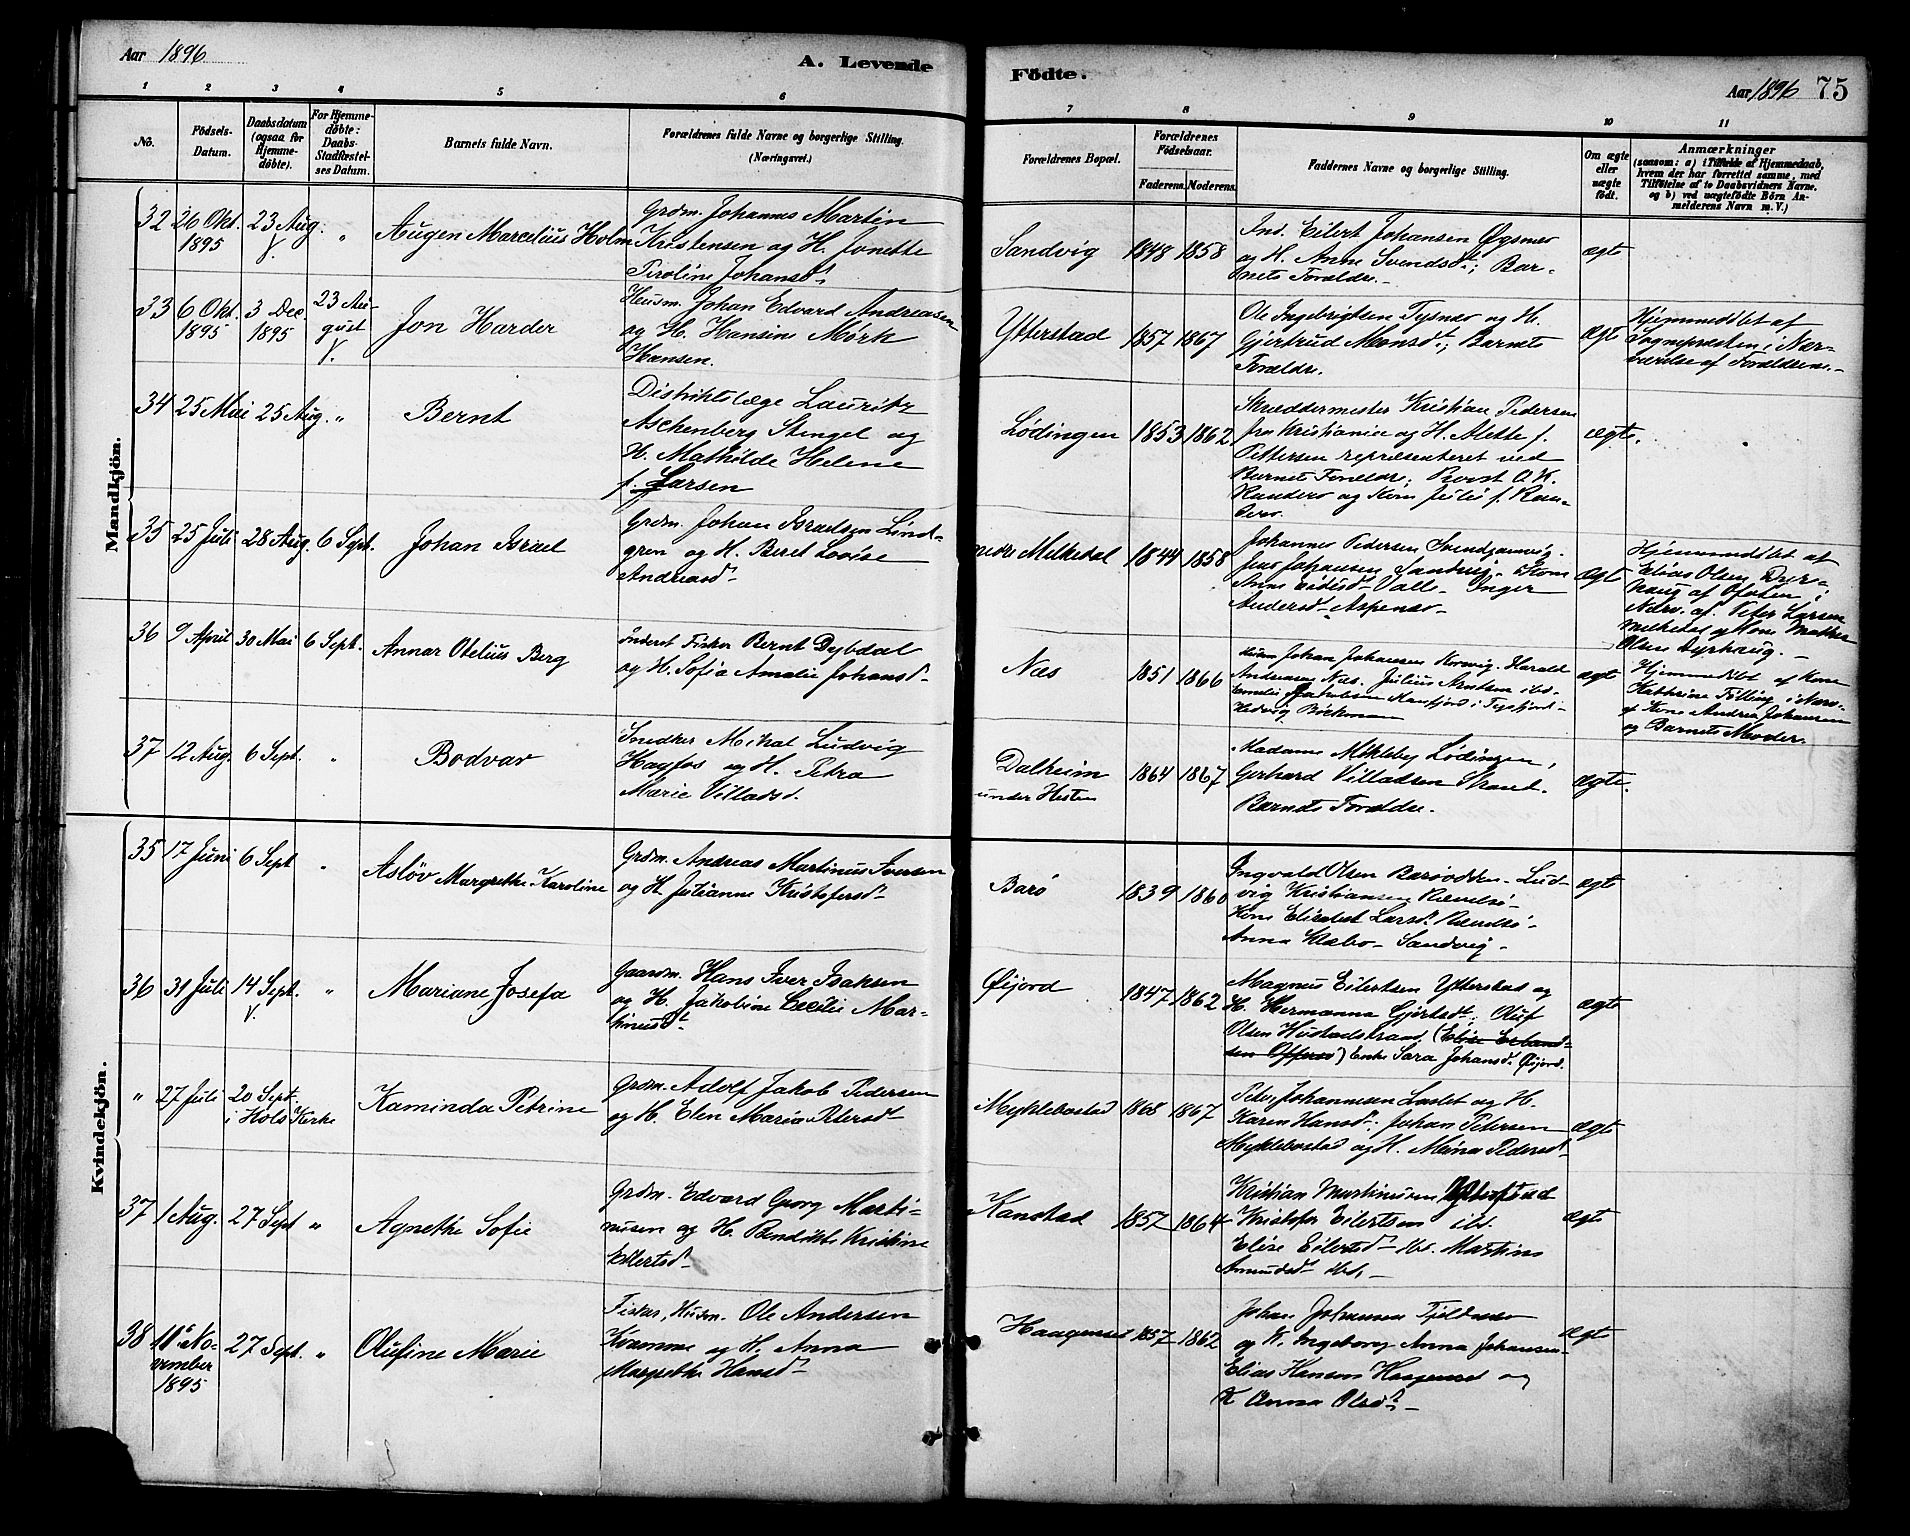 Aar 1896
A. Levende
Födte.
Aar 1896
75
1 2 3 4 5 6 7 8 9 10 11
No.
Födsels-
Datum.
Daabsdatum
(ogsaa for
Hjemme-
döbte).
For Hjemme-
döbte:
Daabs-
Stadfæstel-
ses Datum.
Barnets fulde Navn.
Forældrenes fulde Navne og borgerlige Stilling.
(Næringsvei.)
Forældrenes Bopæl.
Forældrenes
Födselsaar.
Faderens.
Moderens.
Faddernes Navne og borgerlige Stilling.
Om ægte
eller
uægte
födt.
Anmærkninger
(saasom: a) i Tilfælde af Hjemmedaab,
hvem der har forrettet samme, med
Tilföielse af to Daabsvidners Navne,
og b) ved uægtefödte Börn An-
melderens Navn m. V.)
Mandkjön.
32
26 Okt.
1895
23 Aug.
V.
"
Augen Marcelius Holm
Grdm. Johannes Martin
Kristensen og H. Jonette
Piroline Johansd.
Sandvig
1848
1858
Ind. Eilert Johansen Øgsnes
og H. Anne Svendsd.; Bar-
nets Forældre.
ægte
33
6 Okt.
1895
3 Dec.
1895
23 Au-
gust
V.
Jon Harder
Husm. Johan Edvard Andreassen
og H. Hansine Mørk
Hansen.
Ytterstad
1857
1867
Ole Ingebrigtsen Tysnes og H.
Gjertrud Monsd.; Barnets
Forældre.
ægte
Hjemmedöbt af
Sognepresten i Nær-
værelse af Forældrene.
34
25 Mai
25 Aug.
"
Bernt
Distriktslæge Lauritz
Aschenberg Stengel og
H. Mathilde Helene
f. Larsen
Lødingen
1853
1862
Skreddermester Kristian Pedersen
fra Kristiania og H. Alette f.
Pettersen repræsenteret ved
Barnets Forældre; Provst O. K.
Randers og Kone Julie f. Ran-
ders
ægte.
35
25 Juli
28 Aug.
6 Sept.
Johan Israel
Grdm. Johan Israelsen Lind-
gren og H. Beret Lovise
Andreasd.
nedre Melkedal
1844
1858
Johannes Pedersen
Jens Johansen Sandvig. Kone
Valle - Inger
Andersd. Aspenes
ægte
Hjemmedöbt af
Elias Olsen Dyr-
haug af Ofoten i
Nærv. af Peter Larsen
Melkedal og Kone
Olsen Dyrhaug.
36
9 April
30 Mai
6 Sept.
Annar Otelius Berg
Inderst Fisker Bernt Dybdal
og H. Sofia Amalie Johansd.
Næs
1851
1866
Johan Johansen Korsvig. Harald
Andreasen Næs. Julius Arntsen ibd.
Jakobsen Kanfjord i Tysfjord
Hedvig Böckmann
ægte
Hjemmedöbt af Kone
Kathrine Fölling i Nærv.
af Kone Andrea Johansen
og Barnets Moder.
37
12 Aug.
6 Sept.
"
Bodvar
Snedker Mikal Ludvig
Hagfos og H. Petra
Marie Villadsd.
Dalheim
under Hesten
1864
1867
Madame Lødingen,
Gerhard Villadsen Strand.
Barnets Forældre.
ægte.
Kvindekjön.
35
17 Juni
6 Sept
"
Asløv Margrethe Karoline
Grdm. Andreas Martinus Iversen
og H. Julianne Kristofersd.
Barö
1839
1860
Ingvald Olsen Barøodden. Lud-
vig Kristiansen Rævelsö.
Kone Elisabet Larsd.
Anna Klæbo - Sandvig.
ægte
36
31 Juli
14 Sept.
V.
"
Mariane Josefa
Gaardm. Hans Iver Isaksen
og H. Jakobine Cecilie Mar-
tinusd.
Øijord
1847
1862
Magnus Eilertsen Ytterstad og
H. Hermanna Gjertsd.; Oluf
Olsen Hustadstrand. (Elise Erland-
sen Offersø) Enke Sara Johansd. Øijord.
ægte
"
27 Juli
20 Sept.
i Hols Kirke
Kaminda Petrine
Grdm. Adolf Jakob Pedersen
og H. Elen Maria Petersd.
Myklebostad
1868
1867
Peter Johannesen Lastet og H.
Karen Hansd.; Johan Petersen
Myklebostad og H. Mina Pedersd.
ægte
37
1 Aug.
27 Sept
"
Agnethe Sofie
Grdm. Edvard Georg Marti-
nusen og H. Bendikte Kristine
Eilertsd.
Kanstad
1857
1864
Kristian Martinusen
Kristofer Eilertsen ibd.
Elise Eilertsd. ibd. Martine
Amundsd. ibd.
ægte
38
11 No-
vember
1895
27 Sept.
"
Olufine Marie
Fisker, Husm. Ole Andersen
Kramme og H. Anna
Margrethe Hansd.
Haagenset
1857
1862
Johan Johansen Fjeldnes
og K. Ingeborg Anna Johansen
Elias Hansen Haagenset og
K Anna Olsd.
ægte